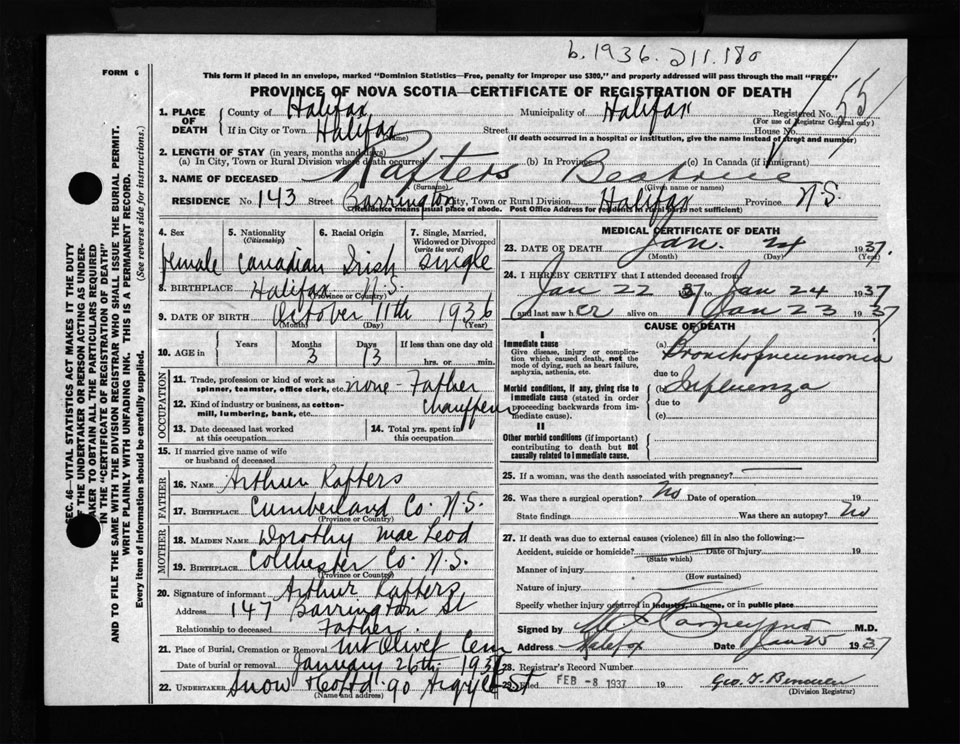 b. 1936. 211.180
FORM 6
This form if placed in an envelope, marked "Dominion Statistics—Free, penalty for improper use $300," and properly addressed will pass through the mail "FREE"
PROVINCE OF NOVA SCOTIA—CERTIFICATE OF REGISTRATION OF DEATH
1. PLACE OF DEATH County of Halifax Municipality of Halifax Registered No. 55
(For use of Registrar General only)
If in City or Town Halifax (Name) Street House No.
(If death occurred in a hospital or institution, give the name instead of street and number)
2. LENGTH OF STAY (in years, months and days)
(a) In City, Town or Rural Division where death occurred (b) In Province (c) In Canada (if immigrant)
3. NAME OF DECEASED Rafters Beatrice
(Surname) (Given name or names)
RESIDENCE No. 143 Street Barrington City, Town or Rural Division Halifax Province N.S.
(Residence means usual place of abode. Post Office Address for residents in rural parts not sufficient)
4. Sex female
5. Nationality (Citizenship) Canadian
6. Racial Origin Irish
7. Single, Married, Widowed or Divorced (write the word) single
8. BIRTHPLACE Halifax N.S.
(Province or Country)
9. DATE OF BIRTH October 11th 1936
(Month) (Day) (Year)
10. AGE in Years Months 3 Days 13 If less than one day old hrs. or min.
OCCUPATION
11. Trade, profession or kind of work as spinner, teamster, office clerk, etc. none - Father
12. Kind of industry or business, as cotton-mill, lumbering, bank, etc. chauffeur
13. Date deceased last worked at this occupation
14. Total yrs. spent in this occupation
15. If married give name of wife or husband of deceased
FATHER
16. NAME Arthur Rafters
17. BIRTHPLACE Cumberland Co. N.S.
(Province or Country)
MOTHER
18. MAIDEN NAME Dorothy Mac Leod
19. BIRTHPLACE Colchester Co N.S.
(Province or Country)
20. Signature of informant Arthur Rafters
Address 147 Barrington St
Relationship to deceased Father
21. Place of Burial, Cremation or Removal Mt Olivet Cem
Date of burial or removal January 26th 193
22. UNDERTAKER Snow & Co Ltd 90 Argyle St
(Name and address)
MEDICAL CERTIFICATE OF DEATH
23. DATE OF DEATH Jan. 24 1937.
(Month) (Day) (Year)
24. I HEREBY CERTIFY that I attended deceased from
Jan 22 37 to Jan 24 1937
and last saw her alive on Jan 23 1937
CAUSE OF DEATH
I
Immediate cause
Give disease, injury or complication which caused death, not the mode of dying, such as heart failure, asphyxia, asthenia, etc.
(a) Bronchopneumonia
due to
Morbid conditions, if any, giving rise to immediate cause (stated in order proceeding backwards from immediate cause).
(b) Influenza
due to
(c)
II
Other morbid conditions (if important) contributing to death but not causally related to immediate cause.
25. If a woman, was the death associated with pregnancy?
26. Was there a surgical operation? No Date of operation 19
State findings Was there an autopsy? No
27. If death was due to external causes (violence) fill in also the following:—
Accident, suicide or homicide? Date of injury 19
(State which)
Manner of injury
(How sustained)
Nature of injury
Specify whether injury occurred in industry, in home, or in public place
Signed by M.D.
Address Halifax Date Jan 25 1937
28. Registrar's Record Number
29. Filed FEB -8 1937 19 Geo. T.
(Division Registrar)
SEC. 46—VITAL STATISTICS ACT MAKES IT THE DUTY
OF THE UNDERTAKER OR PERSON ACTING AS UNDERTAKER TO OBTAIN ALL THE PARTICULARS REQUIRED
IN THE "CERTIFICATE OF REGISTRATION OF DEATH"
AND TO FILE THE SAME WITH THE DIVISION REGISTRAR WHO SHALL ISSUE THE BURIAL PERMIT.
WRITE PLAINLY WITH UNFADING INK. THIS IS A PERMANENT RECORD.
Every item of information should be carefully supplied. (See reverse side for instructions.)